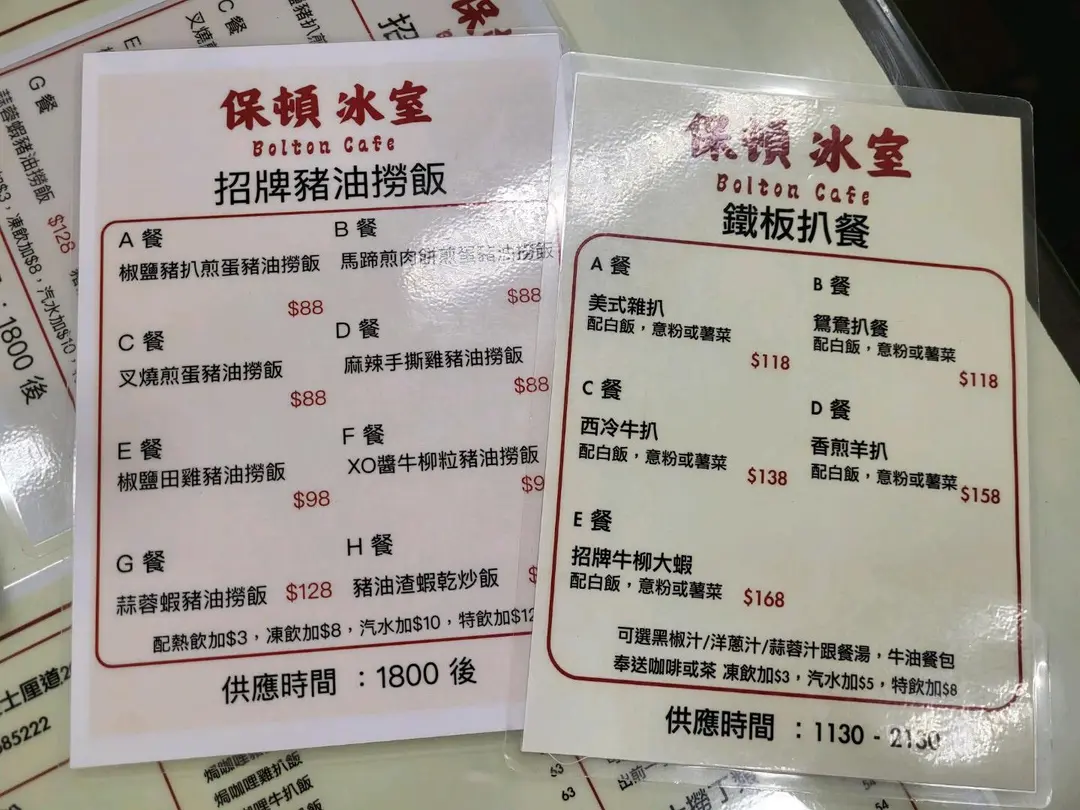 保頓冰室
Bolton Cafe
招牌豬油撈飯
A 餐
椒鹽豬扒煎蛋豬油撈飯
$88
B 餐
馬蹄煎肉餅煎蛋豬油撈飯
$88
C 餐
叉燒煎蛋豬油撈飯
$88
D 餐
麻辣手撕雞豬油撈飯
$88
E 餐
椒鹽田雞豬油撈飯
$98
F 餐
XO醬牛柳粒豬油撈飯
$9
G 餐
蒜蓉蝦豬油撈飯 $128
H 餐
豬油渣蝦乾炒飯 $
配熱飲加$3，凍飲加$8，汽水加$10，特飲加$12
供應時間 ：1800 後
保頓冰室
Bolton Cafe
鐵板扒餐
A 餐
美式雜扒
配白飯，意粉或薯菜
$118
B 餐
鴛鴦扒餐
配白飯，意粉或薯菜
$118
C 餐
西冷牛扒
配白飯，意粉或薯菜
$138
D 餐
香煎羊扒
配白飯，意粉或薯菜
$158
E 餐
招牌牛柳大蝦
配白飯，意粉或薯菜
$168
可選黑椒汁/洋蔥汁/蒜蓉汁跟餐湯，牛油餐包
奉送咖啡或茶 凍飲加$3，汽水加$5，特飲加$8
供應時間 ：1130 - 2130
C 餐
叉燒
E
G 餐
蒜蓉蝦豬油撈飯
$128
加$3，凍飲加$8，汽水加$10，
：1800 後
士厘道
85222
焗咖喱
焗咖喱雞扒飯
焗咖喱牛扒飯
63
63
出前一
54